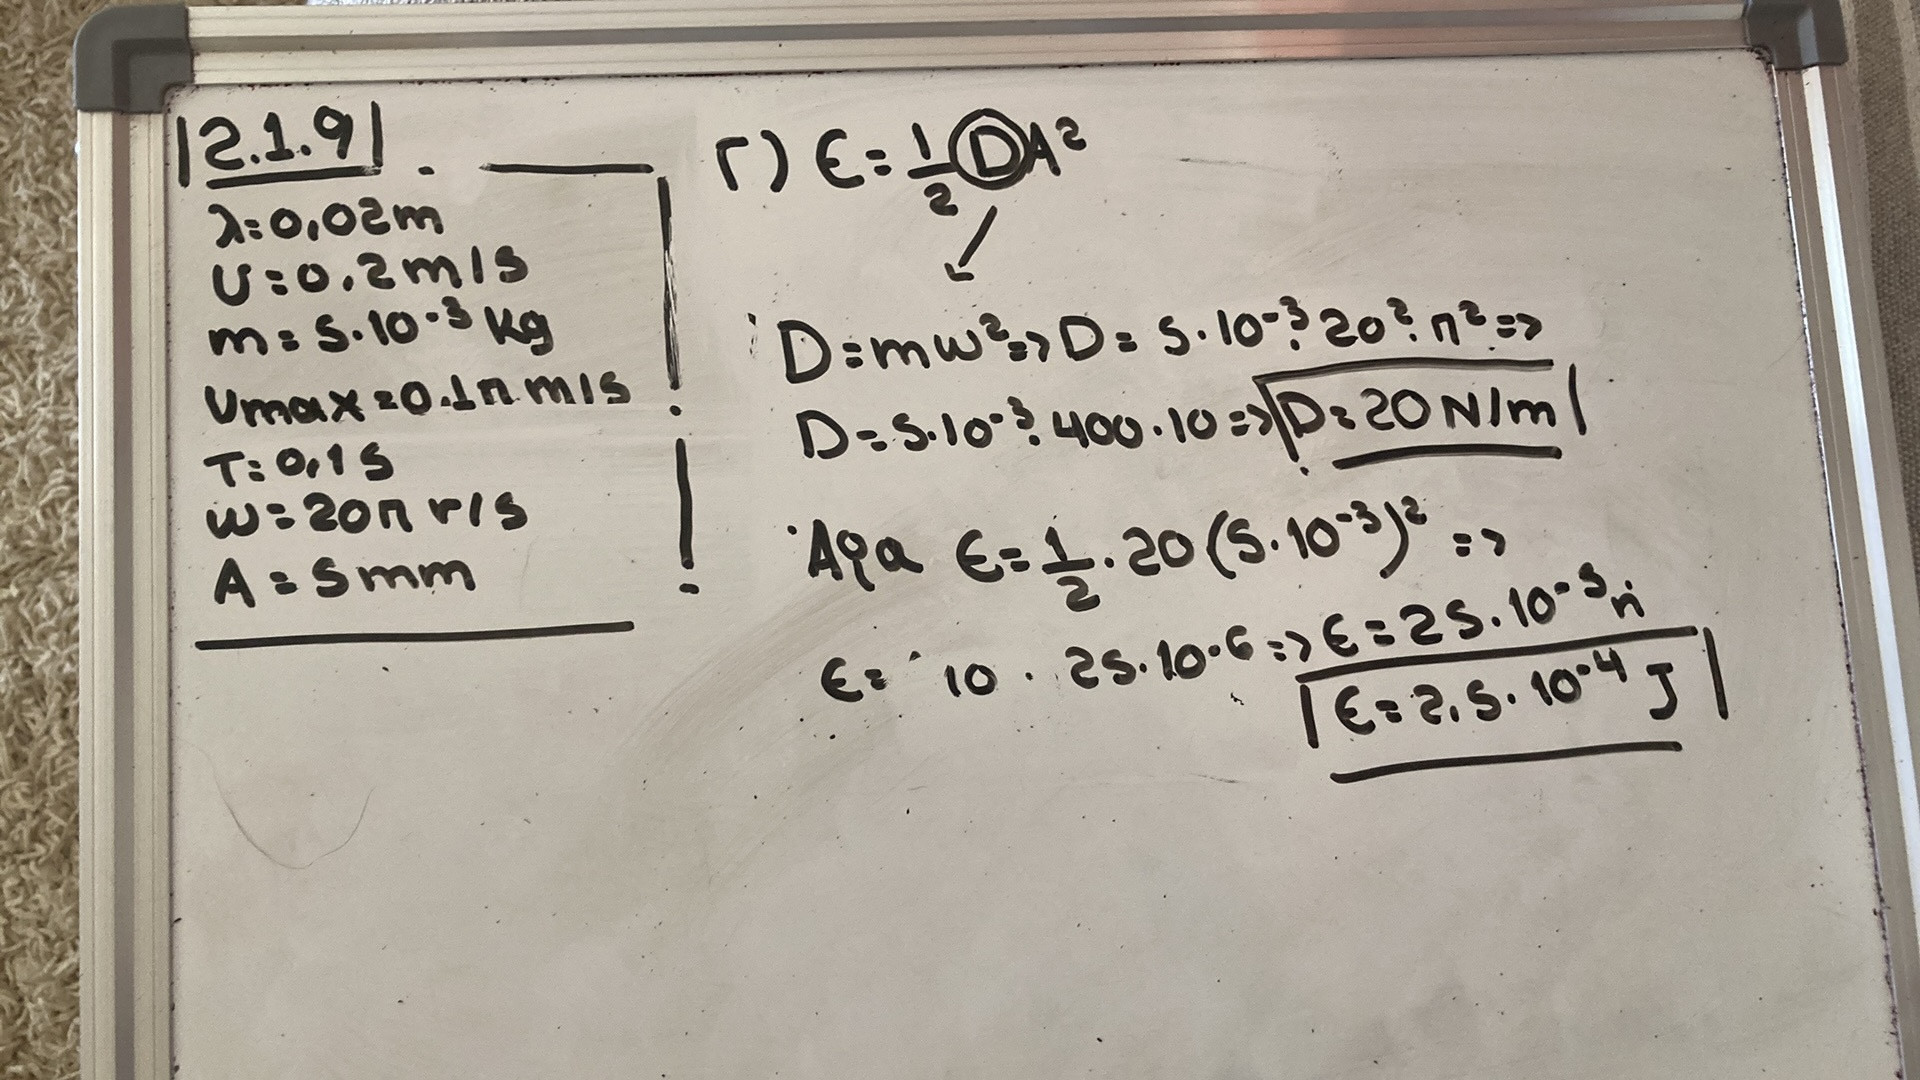 2.1.9
λ=0,02m
U=0,2m/s
m=5·10⁻³kg
Umax=0.1π m/s
T=0,1s
ω=20π r/s
A=5mm
Γ) ε=1/2 D A²
D=mω²=>D=5·10⁻³·20²·π²=>
D=5·10⁻³·400·10=>D=20N/m
Αρα ε=1/2·20(5·10⁻³)² =>
ε=10·25·10⁻⁶=>ε=25·10⁻⁵ ή
ε=2,5·10⁻⁴J